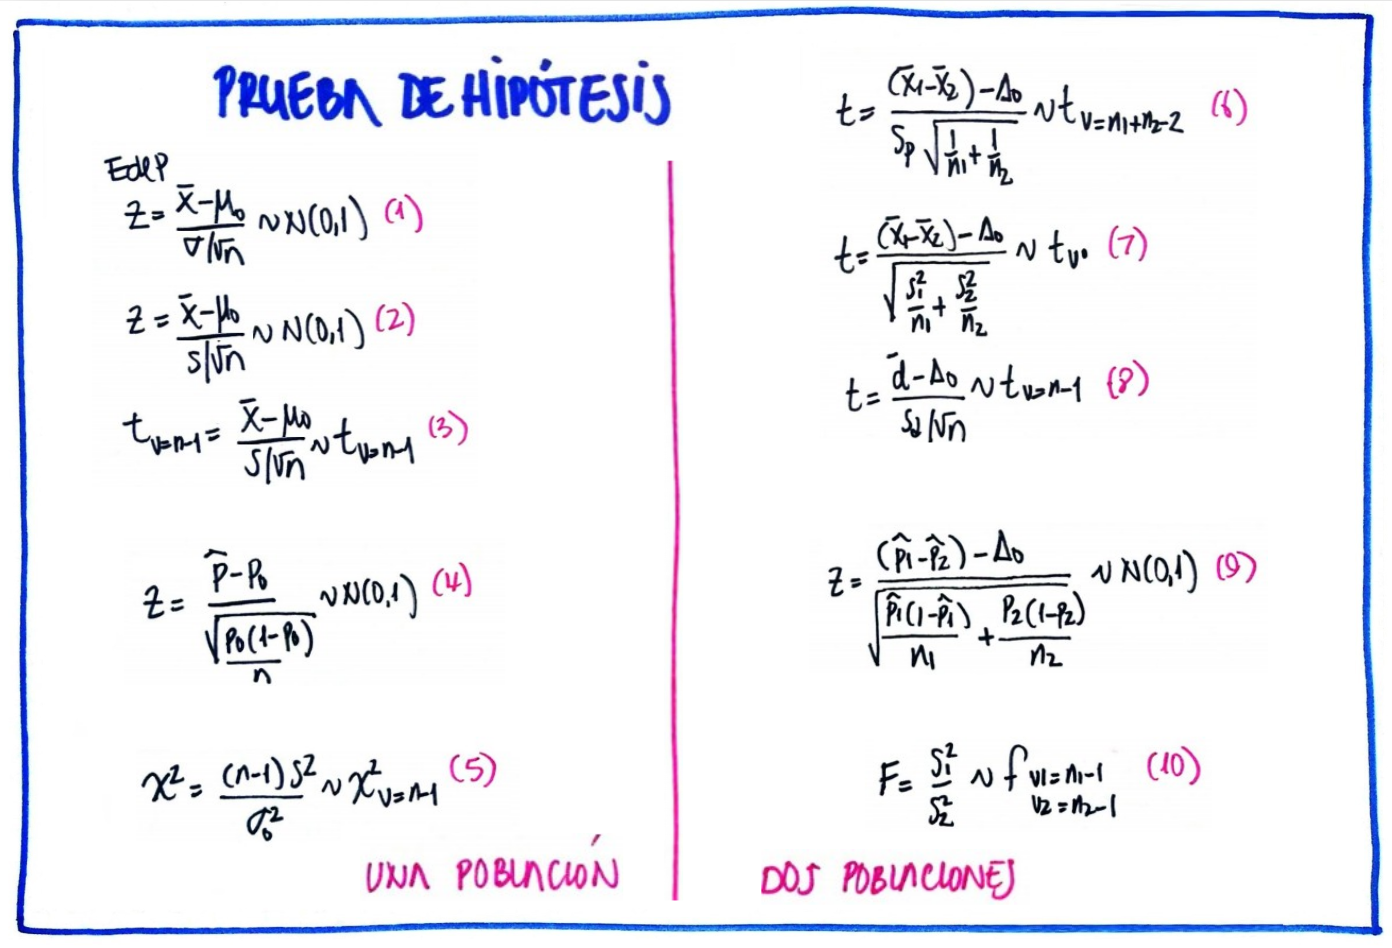 PRUEBA DE HIPÓTESIS
EdeP
Z = (x̄ - μ₀) / (σ/√n) ~ N(0,1) (1)
Z = (x̄ - μ₀) / (s/√n) ~ N(0,1) (2)
t_{v=n-1} = (x̄ - μ₀) / (s/√n) ~ t_{v=n-1} (3)
Z = (p̂ - p₀) / √(p₀(1-p₀)/n) ~ N(0,1) (4)
χ² = (n-1)S² / σ₀² ~ χ²_{v=n-1} (5)
UNA POBLACIÓN
t = ((x̄₁ - x̄₂) - Δ₀) / (Sp √(1/n₁ + 1/n₂)) ~ t_{v=n₁+n₂-2} (6)
t = ((x̄₁ - x̄₂) - Δ₀) / √(S₁²/n₁ + S₂²/n₂) ~ t_{v•} (7)
t = (d̄ - Δ₀) / (Sd/√n) ~ t_{v=n-1} (8)
Z = ((p̂₁ - p̂₂) - Δ₀) / √(p̂₁(1-p̂₁)/n₁ + p₂(1-p₂)/n₂) ~ N(0,1) (9)
F = S₁²/S₂² ~ f_{v1=n₁-1, v2=n₂-1} (10)
DOS POBLACIONES